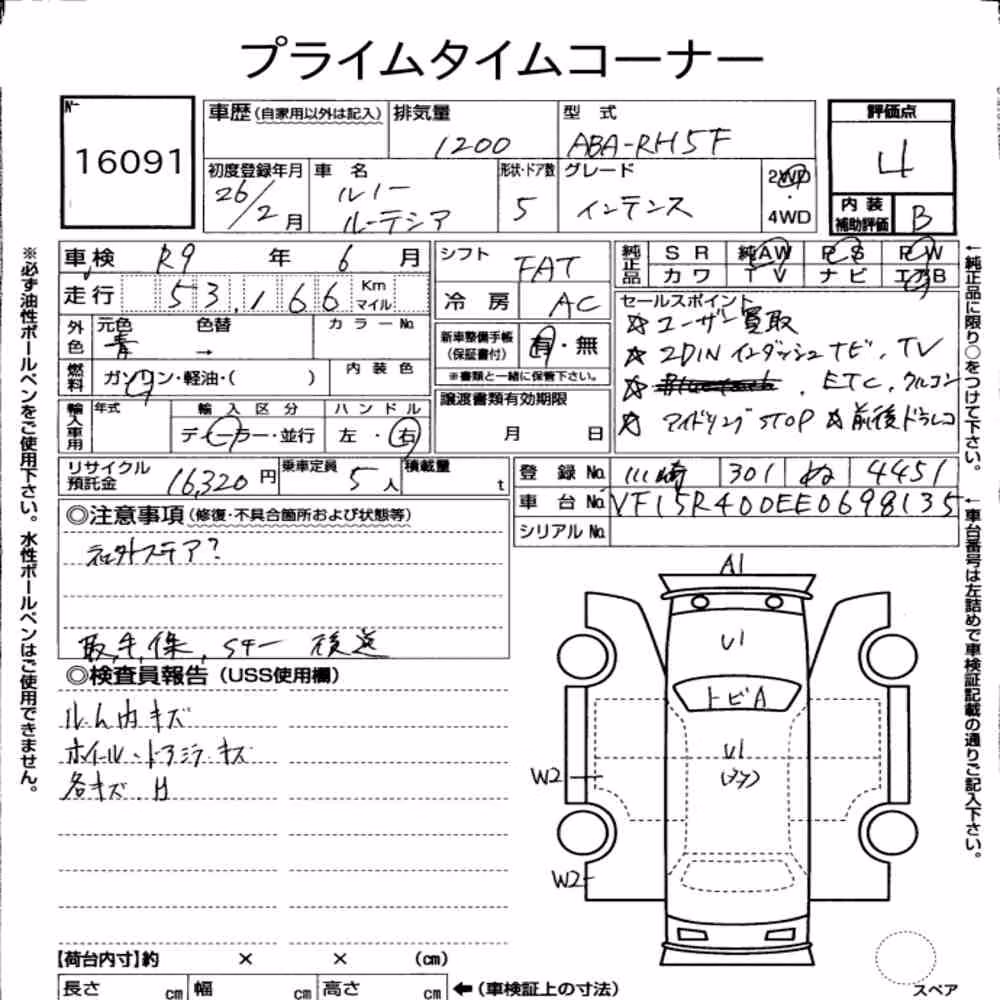 プライムタイムコーナー
No.
16091
車歴 (自家用以外は記入)
排気量
1200
型 式
ABA-RH5F
評価点
4
初度登録年月
26/2月
車 名
ルノー
ルーテシア
形状・ドア数
5
グレード
インテンス
2WD
・
4WD
内 装
補助評価
B
車検 R9 年 6 月
走行 53,166 Km
マイル
外色 元色 色替 カラーNo.
青 →
燃料 ガソリン・軽油・( ) 内 装 色
輸入車用 年式 輸 入 区 分 ハ ン ド ル
ディーラー・並行 左 ・ 右
シフト
FAT
冷 房
AC
新車整備手帳
(保証書付)
有・無
※書類と一緒に保管下さい。
譲渡書類有効期限
月 日
純正品 S R 純AW P S P W
カ ワ T V ナ ビ エアB
セールスポイント
☆ユーザー買取
☆ 2DIN インダッシュナビ、TV
☆ 、ETC、クルコン
☆ アイドリングSTOP ☆前後ドラレコ
リサイクル
預託金
16,320 円
乗車定員
5 人
積載量
t
登 録 No. 川崎 301 ぬ 4451
車 台 No. VF15R400EE0698135
シリアル No.
◎注意事項 (修復・不具合箇所および状態等)
社外ステア?
取、手、保、Sキー 後送
◎検査員報告 (USS使用欄)
ルーム内キズ
各キズ、H
A1
U1
トビA
U1
W2
W2
【荷台内寸】約 × × (cm)
長さ cm 幅 cm 高さ cm ←(車検証上の寸法)
スペア
※必ず油性ボールペンをご使用下さい。水性ボールペンはご使用できません。
←純正品に限り○をつけて下さい。
←車台番号は左詰めで車検証記載の通りご記入下さい。